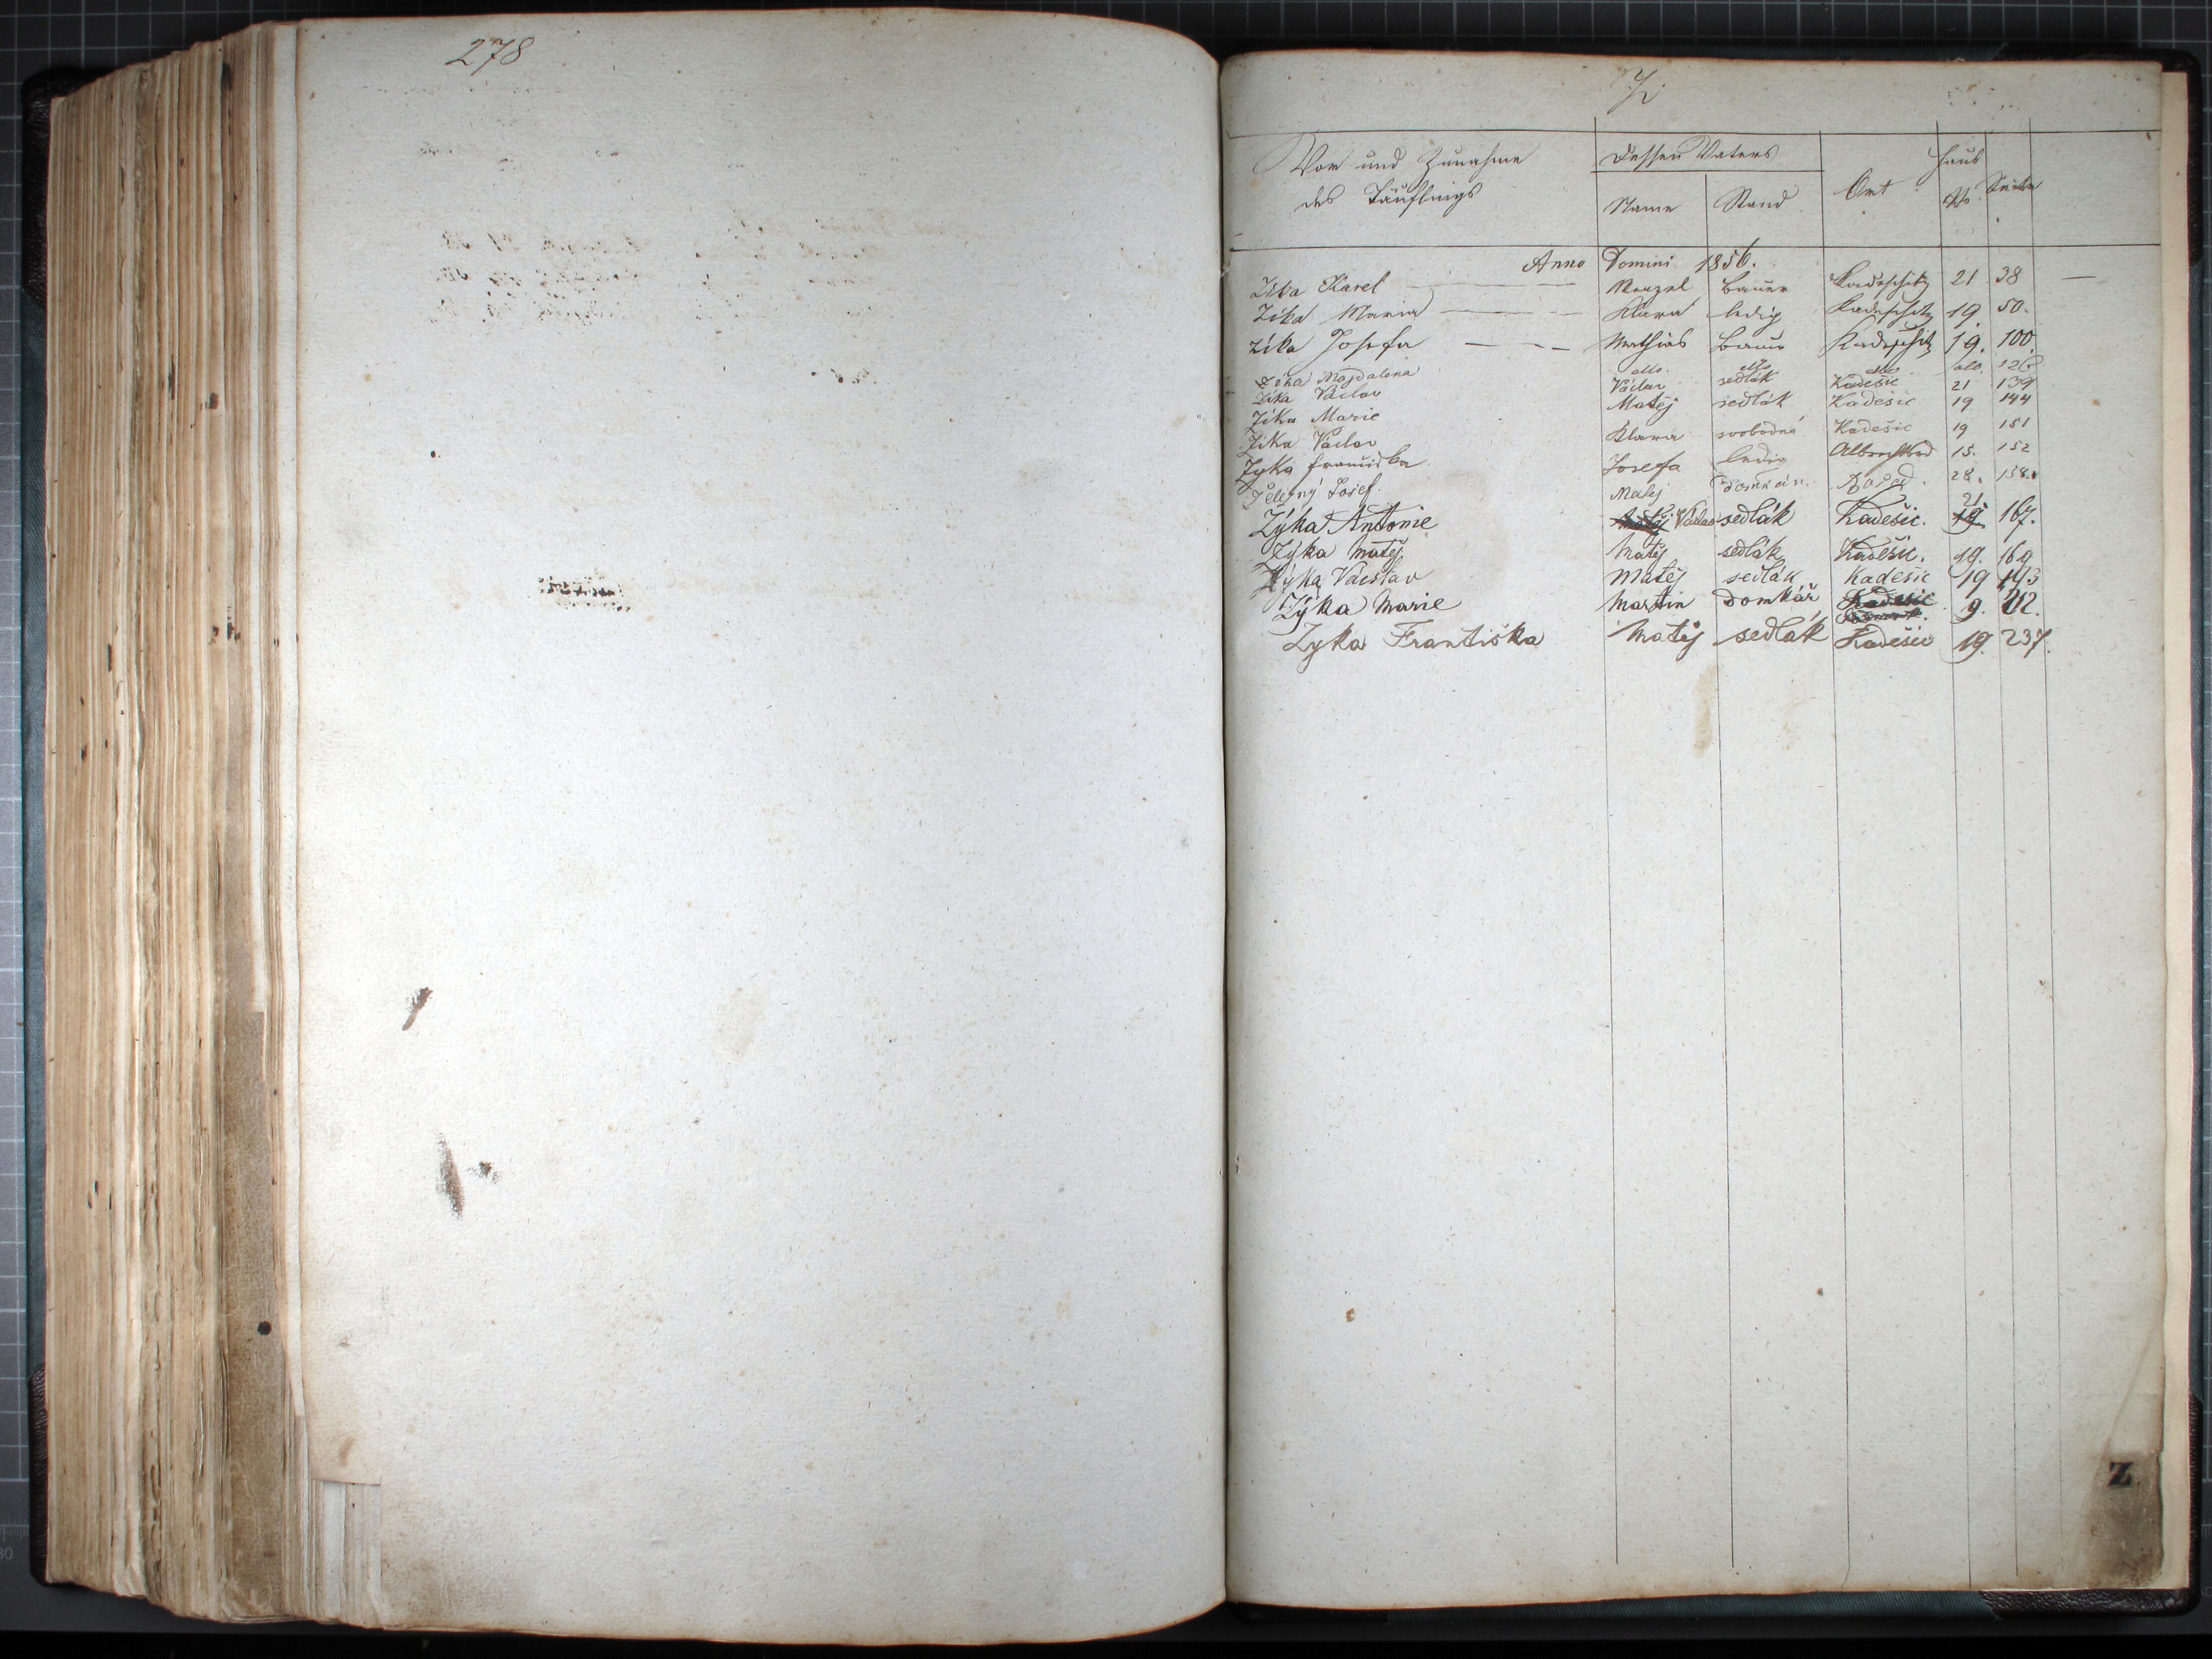 278
Z
Vor und Zunahme des Täuflings Dessen Vaters Name Stand Ort Haus No Seite
Anno Domini 1856.
Zika Karel Wenzel Bauer Kadeschitz 21 38
Zika Maria Klara ledig Kadeschitz 19 50.
Zika Josefa Mathias Bauer Kadeschitz 19. 100.
Zika Magdalena dto. dto dto dto. 126
Zika Václav Václav sedlák Kadešic 21 139
Zika Marie Matěj sedlák Kadešic 19 144
Zika Václav Klara svobodná Kadešic 19 151
Zyka Franciska Josefa ledig 15. 152
Železný Josef. Matěj domkář. 28. 158.
Zýka Antonie Václav sedlák Kadešic. 21. 167.
Zýka Matěj Matěj sedlák Kadešic. 19. 169
Zýka Václav Matěj sedlák Kadešic 19 193
Zýka Marie Martin domkář 9. 212.
Zyka Františka Matěj sedlák Kadešic 19. 237.
Z